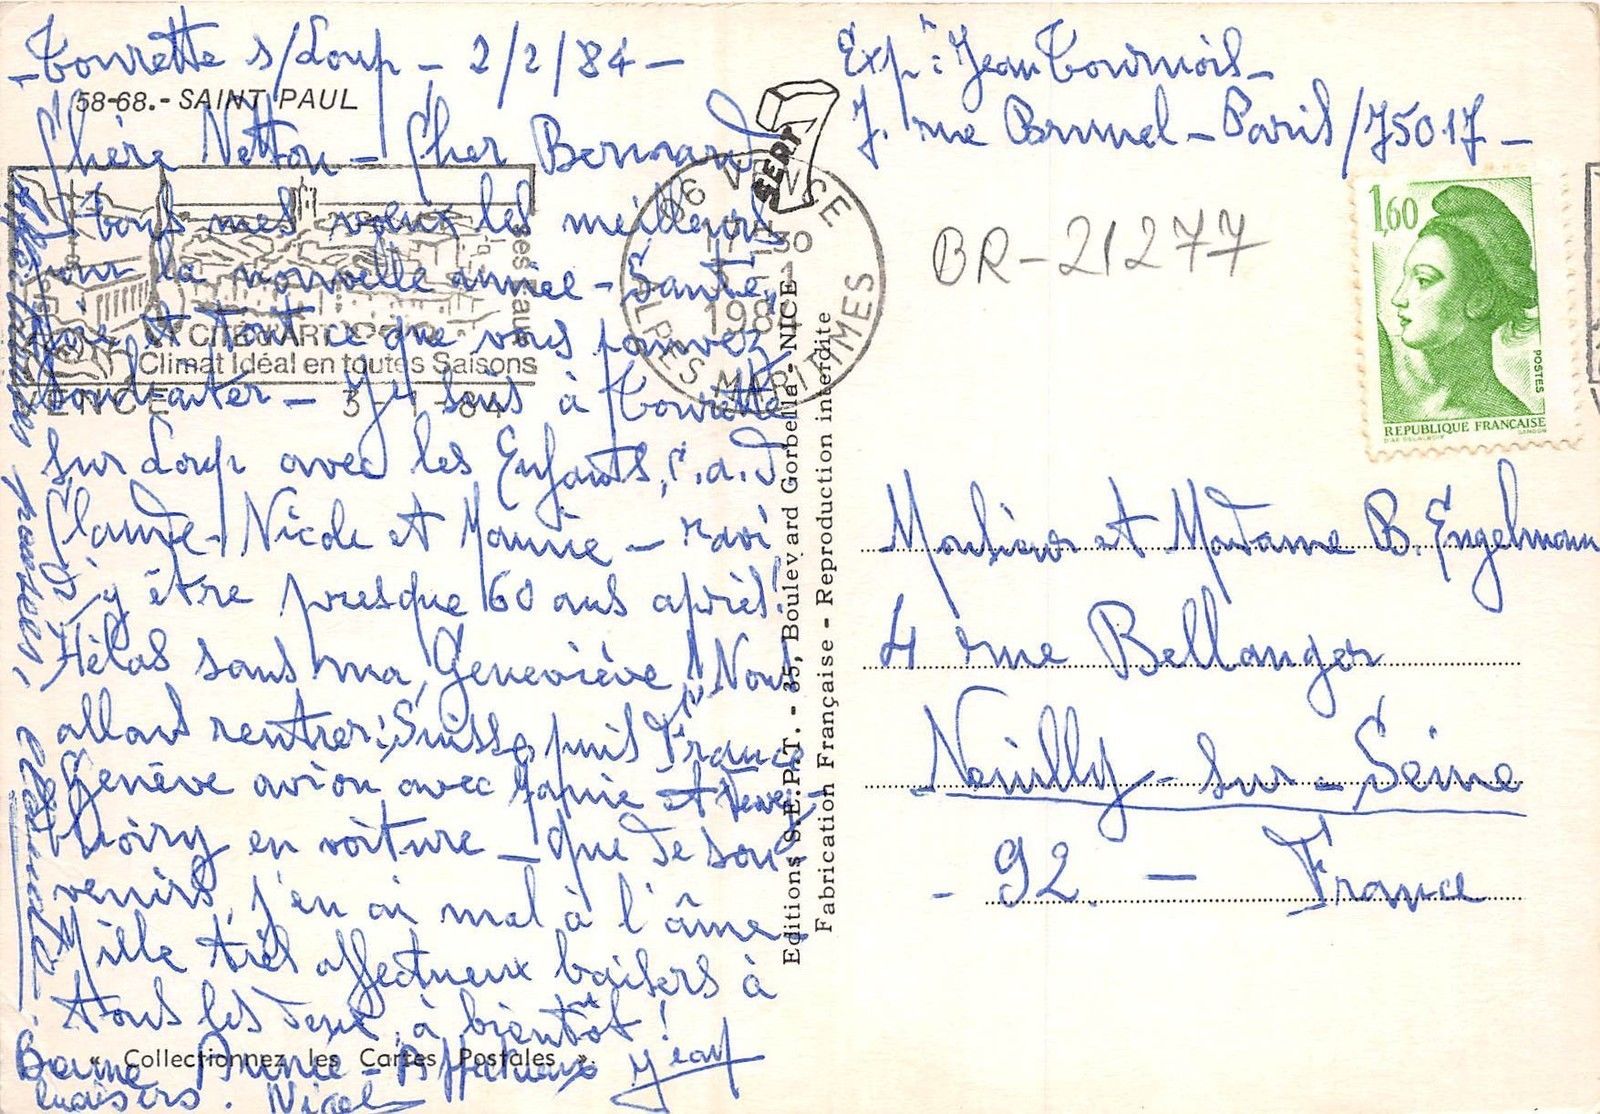 Tourette s/Loup - 2/2/84 -
58-68.- SAINT PAUL
Chère Netton - Cher Bernard
tous mes vœux les meilleurs
pour la nouvelle année - Santé,
joie et tout ce que vous pouvez
souhaiter - Je suis à Tourette
sur Loup avec les Enfants, c.a.d
Claude - Nicole et Mounie - ravi
d'y être presque 60 ans après!
Hélas sans ma Geneviève! Nous
allons rentrer: Suisse, puis France
Genève avion avec
en voiture - que de sou-
venirs, j'en ai mal à l'âme -
Mille très affectueux baisers à
tous les deux, à bientôt!
Jean
Bonne Année - Affectueux
baisers. Nicole
pensées,
« Collectionnez les Cartes Postales ».
CITE D'ART
Climat Idéal en toutes Saisons
VENCE 3-1-84
06 VENCE
ALPES MARITIMES
Editions S.E.P.T. - 35, Boulevard Gorbella - NICE
Fabrication Française - Reproduction interdite
Exp.: Jean Tournois -
7. rue Brunel - Paris/75017 -
BR-21277
1,60
POSTES
REPUBLIQUE FRANÇAISE
Monsieur et Madame B. Engelmann
4 rue Bellanger
Neuilly-sur-Seine
- 92. - France